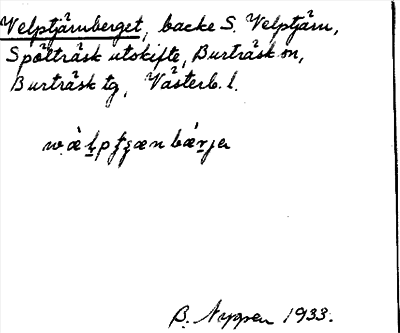 Velptjärnberget, backe S. Velptjärn,
Spölträsk utskifte, Burträsk sn,
Burträsk tg, Västerb. l.
B. Nygren 1933.